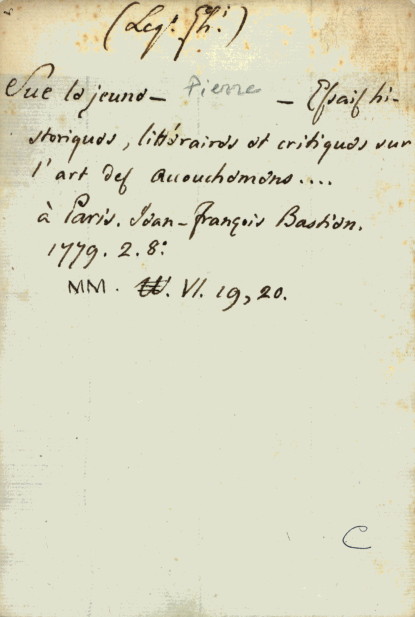 (Leg.t Gh.i)
Sue le jeune – Pierre – Essais hi-
storiques, littéraires et critiques sur
l'art des accouchemens....
à Paris. Jean-François Bastien.
1779. 2. 8.o
MM. VI. 19, 20.
C